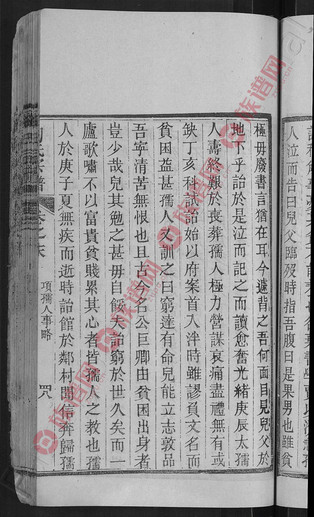 人泣而告曰兒父臨歿時指吾腹曰是果男也雖貧
極毋廢書言猶在耳今違背之吾何面目見兒父於
地下乎詒於是泣而記之而讀愈奮光緒庚辰太孺
人壽終艱於喪葬孺人極力營謀哀痛盡禮無有或
缺丁亥科試詒始以府案首入泮時雖謬負文名而
貧困益甚孺人又訓之曰窮達有命兒能立志敦品
吾寧清苦無恨也且古今名公巨卿由貧困出身者
豈少哉兒其勉之甚毋自餒矣詒窮於世久矣而一
廬歌嘯不以富貴貧賤累其心者皆孺人之教也孺
人於庚子夏無疾而逝時詒館於鄰村聞信奔歸孺
項孺人事略
四八
族谱网